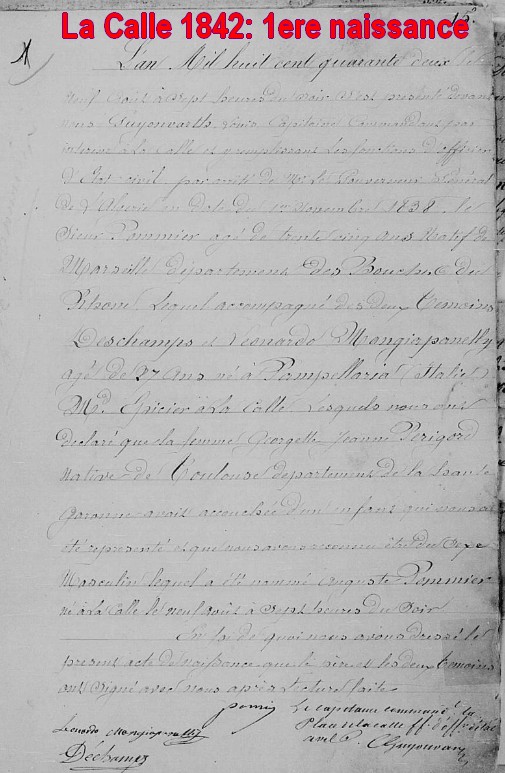 La Calle 1842: 1ere naissance
15.
1
L'an Mil huit cent quarante deux le
neuf Août à sept heures du soir s'est présenté devant
nous Guyonvarth, Louis Capitaine Commandant par
interim à La Calle et remplissant les fonctions d'officier
d'Etat civil par arrêté de Mr le Gouverneur Général
de l'Algérie en date du 1er Novembre 1838 le
Sieur Pommier agé de trente cinq ans Natif de
Marseille département des Bouches du
Rhone lequel accompagné des deux temoins
Deschamps et Léonardo Mongiapanelly
agé de 27 Ans né à Pampellaria (Italie)
Md Epicier à La Calle Lesquels nous ont
déclaré que la femme Georgette Jeanne Périgord
native de Toulouse département de la haute
garonne avait accouchée d'un enfant qui nous a
été représenté et que nous avons reconnu être du sexe
Masculin lequel a été nommé Auguste Pommier
né à La Calle le neuf août à sept heures du Soir
En foi de quoi nous avons dressé le
présent acte de naissance que le père et les deux temoins
ont signé avec nous après lecture faite
Le Capitaine commandt la
Place de la Calle ff. d'off. d'état
Leonardo
Dechamps
Guyonvarth